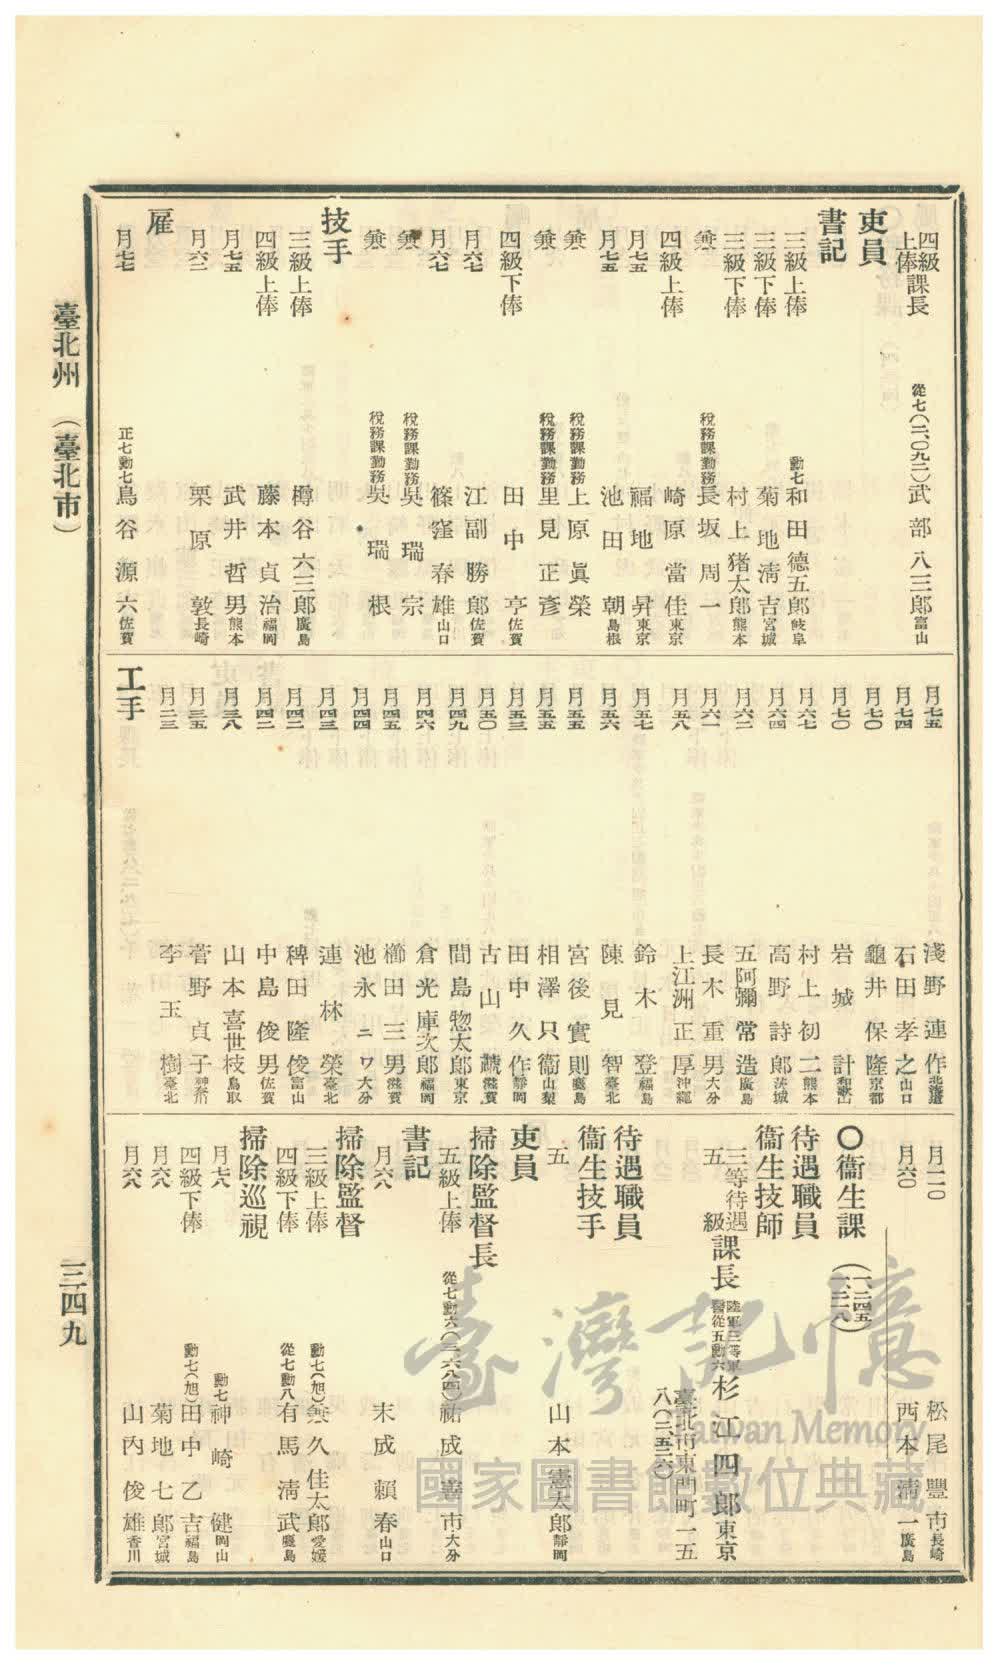 四級上俸 課長 從七(二、〇九二) 武部八三郎 富山
吏員
書記
三級上俸 勳七 和田德五郎 岐阜
三級下俸 菊地淸吉 宮城
三級下俸 村上猪太郎 熊本
兼 稅務課勤務 長坂周一
四級上俸 崎原當佳 東京
月七五 福地昇 東京
月七五 池田朝 島根
兼 稅務課勤務 上原眞榮
兼 稅務課勤務 里見正彥
四級下俸 田中亨 佐賀
月六七 江副勝郞 佐賀
月六七 篠窪春雄 山口
兼 稅務課勤務 吳瑞宗
兼 稅務課勤務 吳瑞根
技手
三級上俸 樽谷六三郞 廣島
四級上俸 藤本貞治 福岡
月七五 武井哲男 熊本
月六二 栗原敦 長崎
雇
月七七 正七勳七 鳥谷源六 佐賀
月七五 淺野連作 北海道
月七四 石田孝之 山口
月七〇 龜井保隆 京都
月七〇 岩城計 和歌山
月六七 村上初二 熊本
月六四 高野詩郞 茨城
月六二 五阿彌常造 廣島
月六一 長木重男 大分
月五八 上江洲正厚 沖繩
月五七 鈴木登 福島
月五六 陳見智 臺北
月五五 宮後實則 鹿島
月五五 相澤只衞 山梨
月五三 田中久作 靜岡
月五〇 古山讓 滋賀
月四九 間島惣太郞 東京
月四六 倉光庫次郞 福岡
月四五 櫛田三男 滋賀
月四四 池永ニワ 大分
月四三 連林榮 臺北
月四二 稗田隆俊 富山
月四二 中島俊男 佐賀
月三八 山本喜世枝 鳥取
月三五 菅野貞子 神奈川
月二三 李玉樹 臺北
工手
月二一〇 松尾豐市 長崎
月六〇 西本淸一 廣島
〇衞生課 (一、二四五 一、三一八)
待遇職員
衞生技師
三等待遇五級 課長 陸軍三等軍醫從五勳六 杉江四郞 東京
臺北市東門町一五八(三、五三六)
待遇職員
衞生技手
五 山本憲太郞 靜岡
吏員
掃除監督長
五級上俸 從七勳六(三、六八四) 祐成嘉市 大分
書記
月六八 末成賴春 山口
掃除監督
三級上俸 勳七(旭) 兼久佳太郞 愛媛
四級下俸 從七勳八 有馬淸武 鹿島
掃除巡視
月七六 勳七 神崎健 岡山
四級下俸 勳七(旭) 田中乙吉 福島
月六八 菊地七郞 宮城
月六八 山內俊雄 香川
臺北州 (臺北市)
三四九
臺灣記憶
Taiwan Memory
國家圖書館數位典藏